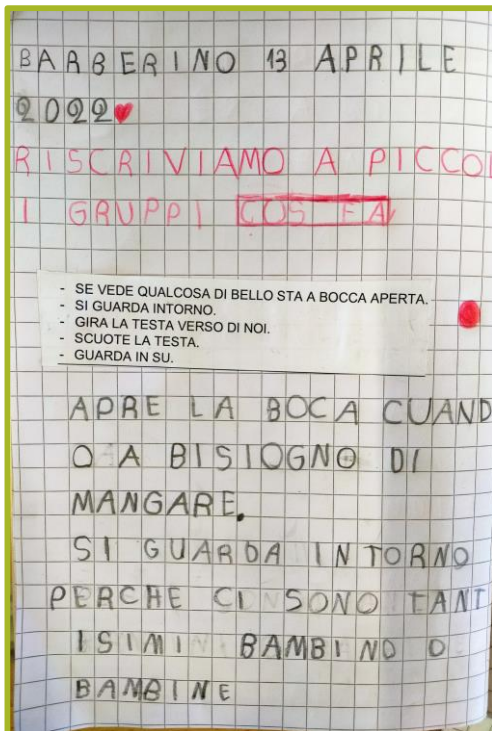 BARBERINO 13 APRILE
2022
RISCRIVIAMO A PICCOL
I GRUPPI COS FA
- SE VEDE QUALCOSA DI BELLO STA A BOCCA APERTA.
- SI GUARDA INTORNO.
- GIRA LA TESTA VERSO DI NOI.
- SCUOTE LA TESTA.
- GUARDA IN SU.
APRE LA BOCA CUAND
O A BISIOGNO DI
MANGARE.
SI GUARDA INTORNO
PERCHE CI SONO TANT
ISIMI BAMBINO O
BAMBINE